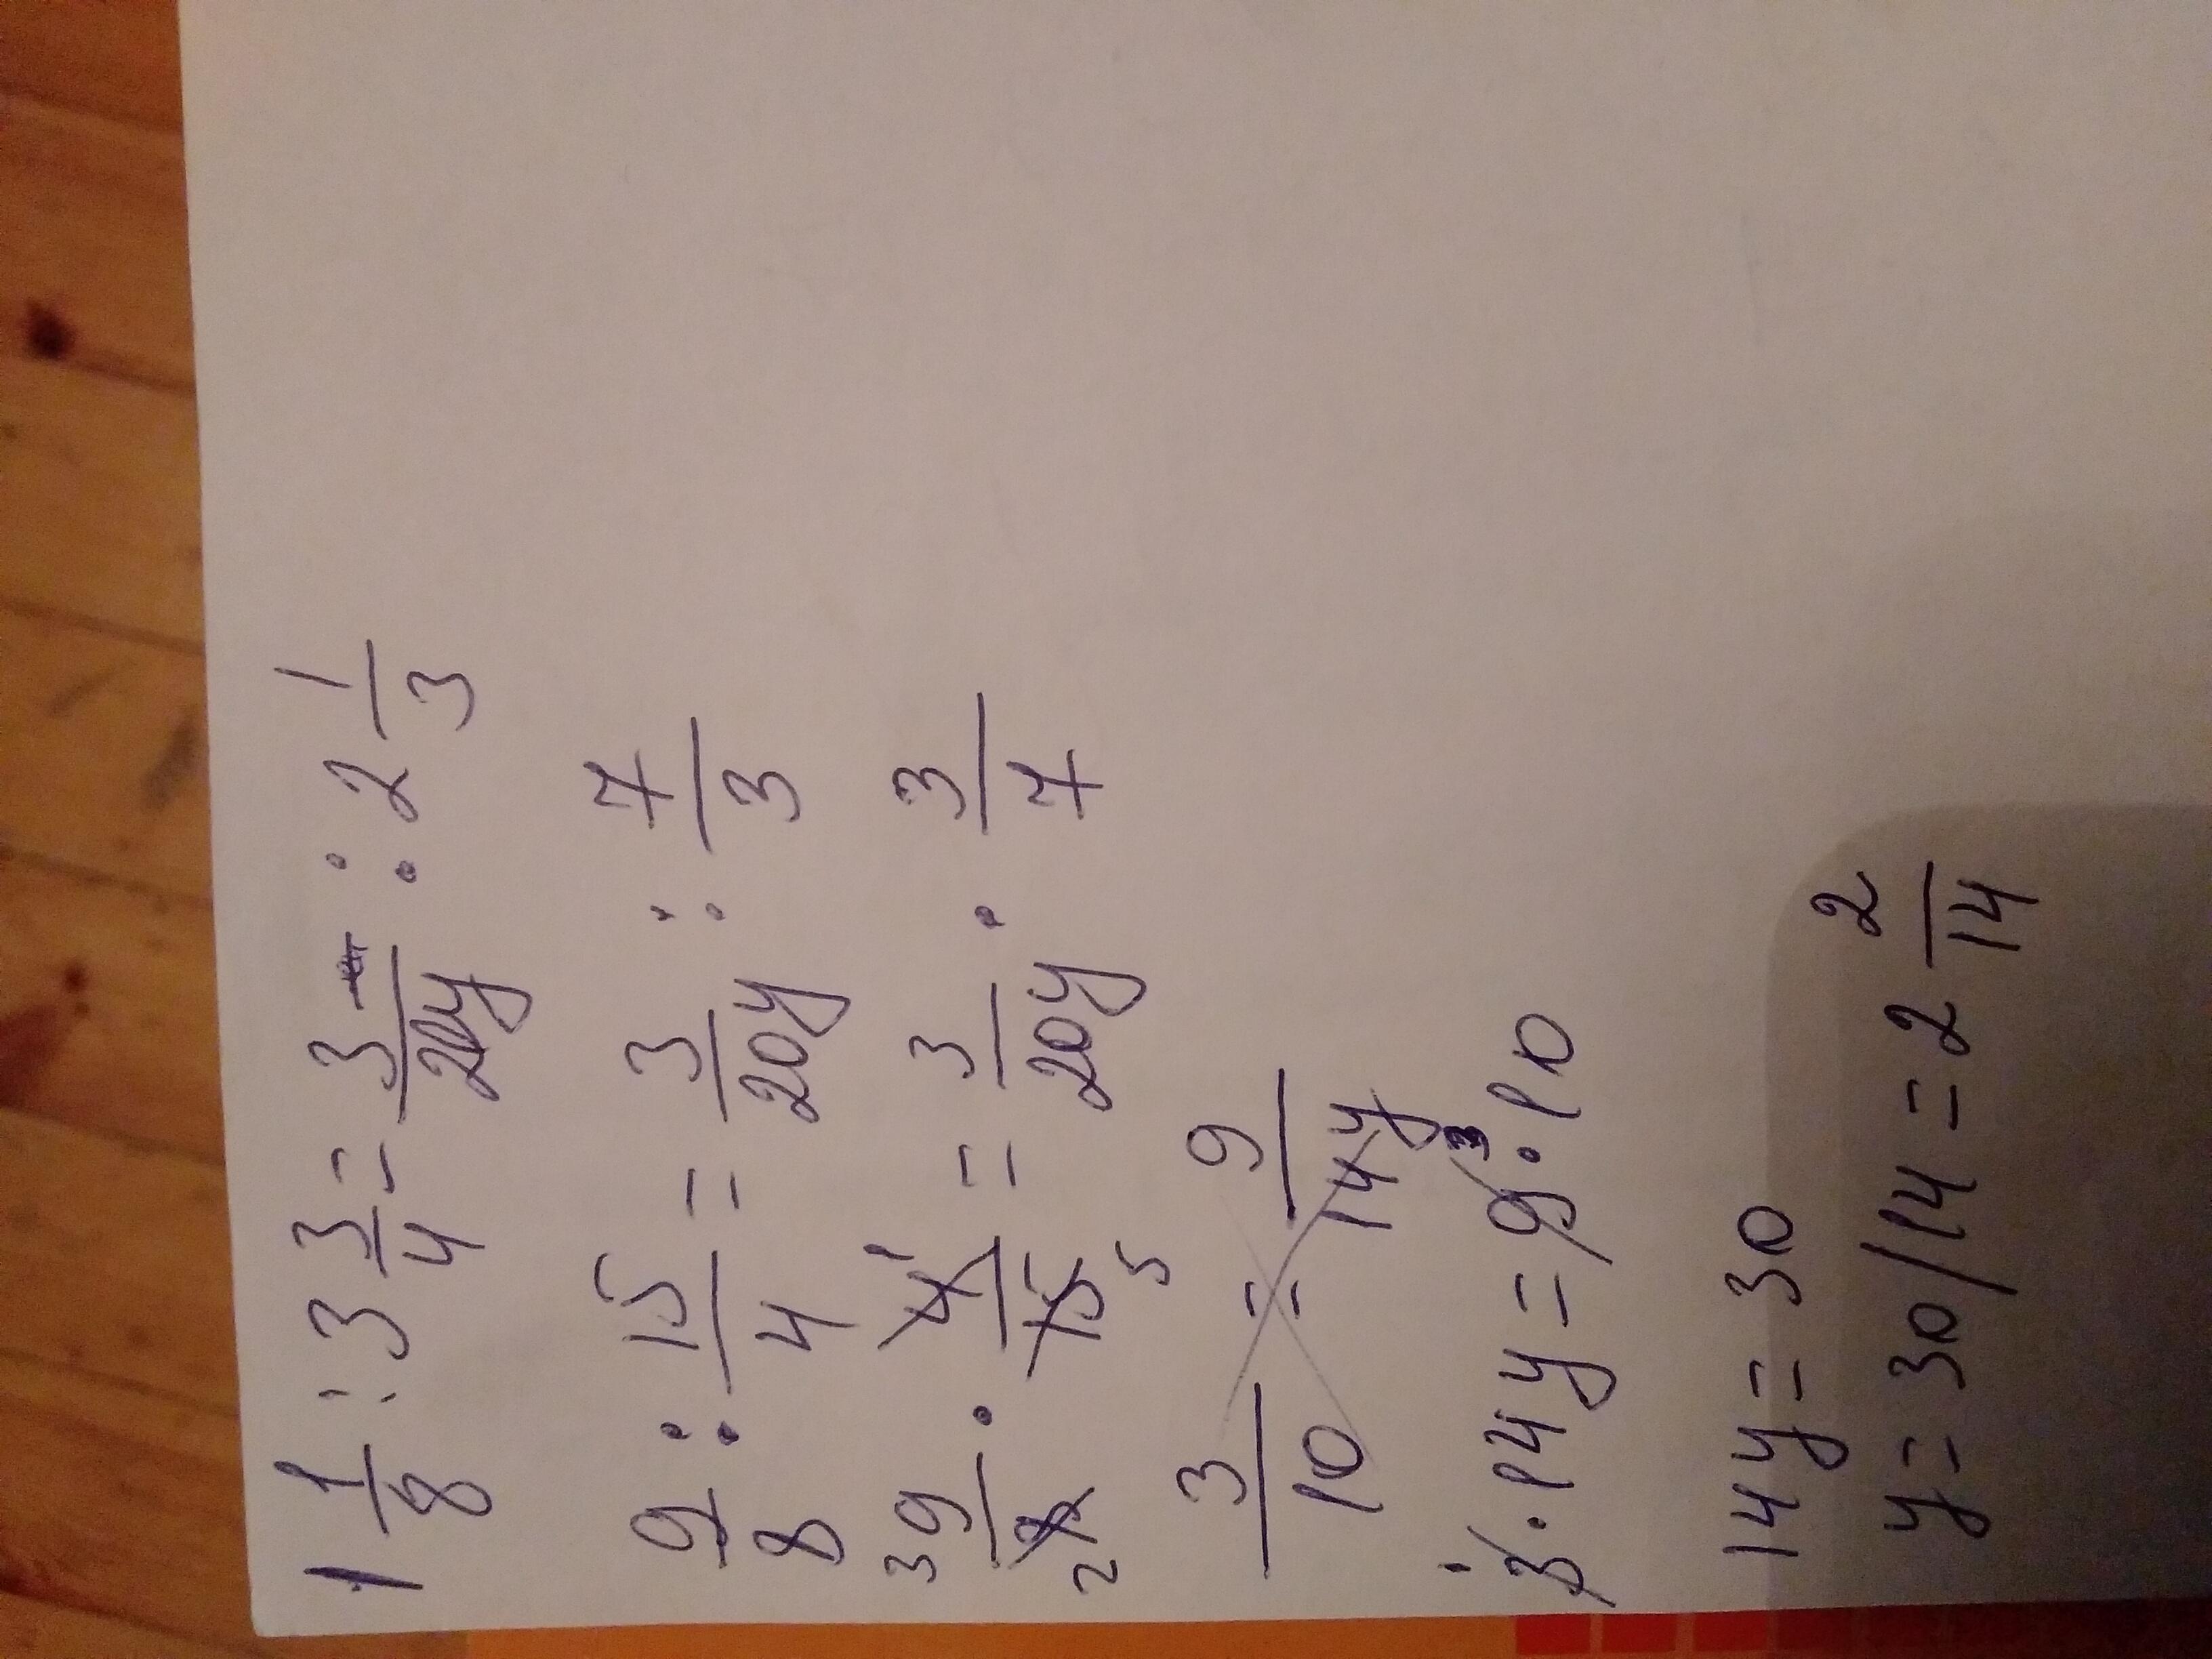 1 1/8 : 3 3/4 = 3/20y : 2 1/3
9/8 : 15/4 = 3/20y : 7/3
3 9/8 2 · 4 1/15 5 = 3/20y · 3/7
3/10 = 9/14y
1 3 · 14y = 9 3 · 10
14y = 30
y = 30/14 = 2 2/14